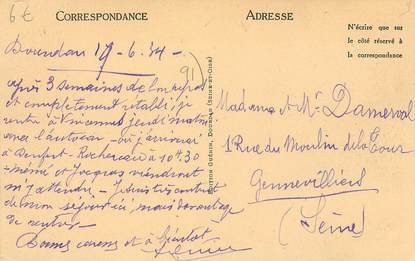 6€
CORRESPONDANCE
ADRESSE
N'écrire que sur
le côté réservé à
la correspondance
Dourdan 19-6.34-
91
après 3 semaines de
et complètement rétabli je
rentre à Vincennes jeudi matin
avec l'autocar - où j'arrive
à Denfert-Rochereau à 10h.30
- mémé et Jacques viendront
m'y attendre - Je suis très content
de mon séjour ici mais davantage
de rentrer
Bonnes caresses et à bientôt
EDITION GUÉRIN, DOURDAN (SEINE-ET-OISE)
Madame et Mr Damerval
1 Rue du Moulin de la Tour
Gennevilliers
(Seine)